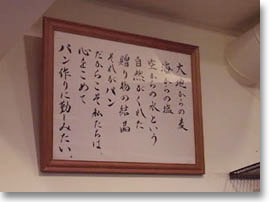 大地からの麦
海からの塩
空からの水という
自然がくれた
贈り物の結晶
それがパン
だからこそ、私たちは
心をこめて
パン作りに勤しみたい。